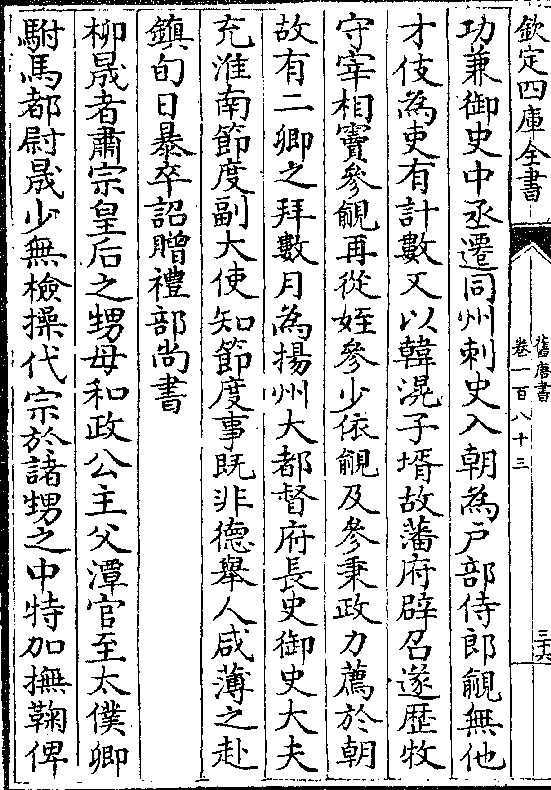 欽定四庫全書
舊唐書
卷一百八十三
三十六
功兼御史中丞遷同州刺史入朝為户部侍郎覦無他
才伎為吏有計數又以韓滉子壻故藩府辟召遂歴牧
守宰相竇參覦再從姪參少依覦及參秉政力薦於朝
故有二卿之拜數月為揚州大都督府長史御史大夫
充淮南節度副大使知節度事既非德舉人咸薄之赴
鎮旬日暴卒詔贈禮部尚書
柳晟者肅宗皇后之甥母和政公主父潭官至太僕卿
駙馬都尉晟少無檢操代宗於諸甥之中特加撫鞠俾